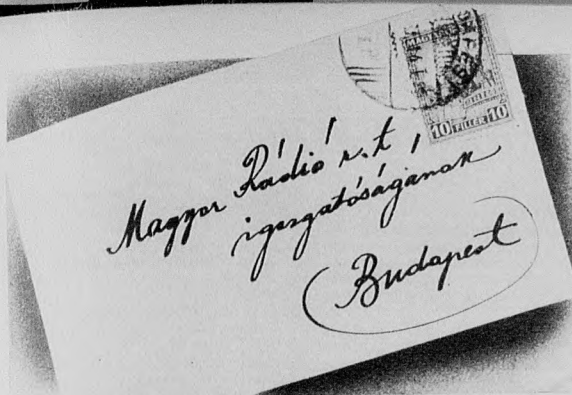 10 FILLÉR 10
Magyar Rádió r.t.
igazgatóságának
Budapest